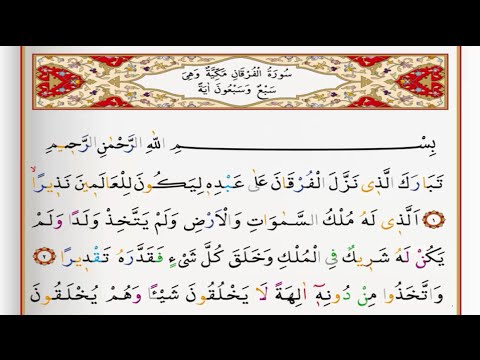 سُورَةُ الْفُرْقَانِ مَكِّيَّةٌ وَهِيَ
سَبْعٌ وَسَبْعُونَ اٰيَةً
بِسْمِ اللّٰهِ الرَّحْمٰنِ الرَّحٖيمِ
تَبَارَكَ الَّذٖي نَزَّلَ الْفُرْقَانَ عَلٰى عَبْدِهٖ لِيَكُونَ لِلْعَالَمٖينَ نَذٖيرًاۙ
﴿١﴾ اَلَّذٖي لَهُ مُلْكُ السَّمٰوَاتِ وَالْاَرْضِ وَلَمْ يَتَّخِذْ وَلَدًا وَلَمْ
يَكُنْ لَهُ شَرٖيكٌ فِي الْمُلْكِ وَخَلَقَ كُلَّ شَيْءٍ فَقَدَّرَهُ تَقْدٖيرًا ﴿٢﴾
وَاتَّخَذُوا مِنْ دُونِهٖٓ اٰلِهَةً لَا يَخْلُقُونَ شَيْـًٔا وَهُمْ يُخْلَقُونَ